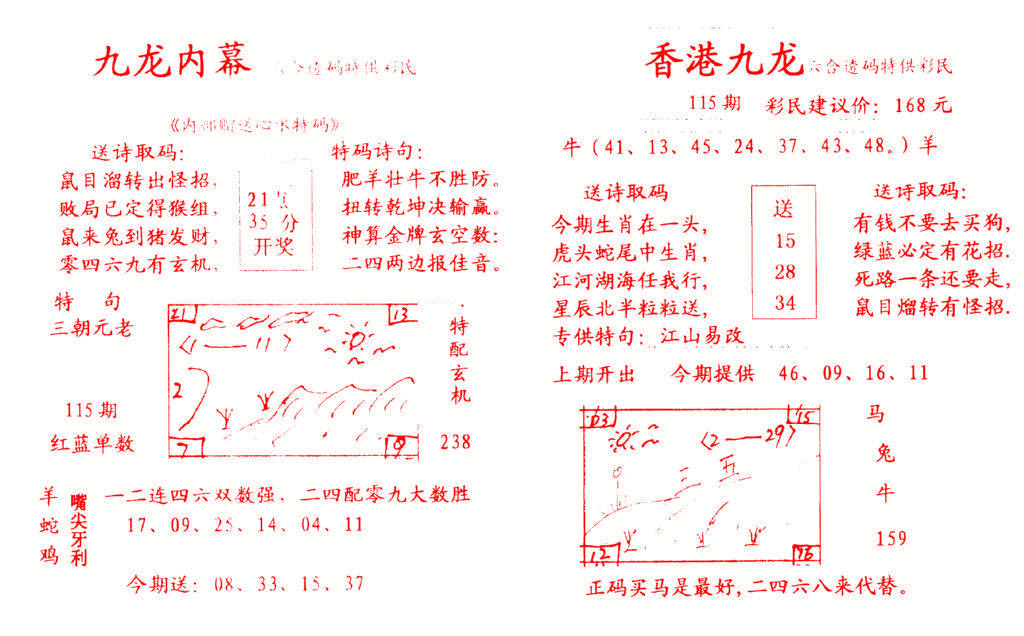 九龙内幕 六合透码特供彩民
《内部赠送心水特码》
送诗取码：
鼠目溜转出怪招，
败局已定得猴组，
鼠来兔到猪发财，
零四六九有玄机，
21
35 分
开奖
特码诗句：
肥羊壮牛不胜防。
扭转乾坤决输赢。
神算金牌玄空数：
二四两边报佳音。
特 句
三朝元老
115期
红蓝单数
21
13
2
7
9
特配玄机
238
羊蛇鸡
嘴尖牙利
一二连四六双数强，二四配零九大数胜
17、09、25、14、04、11
今期送：08、33、15、37
香港九龙 六合透码特供彩民
115期 彩民建议价：168元
牛（41、13、45、24、37、43、48。）羊
送诗取码
今期生肖在一头，
虎头蛇尾中生肖，
江河湖海任我行，
星辰北半粒粒送，
专供特句：江山易改
送
15
28
34
送诗取码：
有钱不要去买狗，
绿蓝必定有花招.
死路一条还要走，
鼠目熘转有怪招.
上期开出 今期提供 46、09、16、11
03
15
〈2——29〉
三五
12
马
兔
牛
159
正码买马是最好，二四六八来代替。